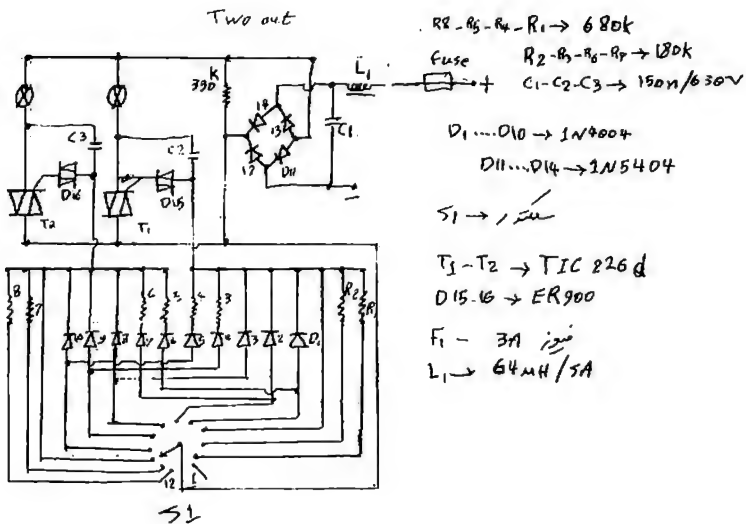 Two out
R8-R5-R4-R1→ 680k
R2-R3-R6-R7→ 180k
C1-C2-C3→ 150n/630V
D1....D10→ 1N4004
D11...D14→ 1N5404
S1→
T1-T2→ TIC 226d
D15-16→ ER900
F1 - 3A فیوز
L1→ 64MH/5A
Fuse
+
L1
K
330
14
13
12
D11
C1
C3
C2
D16
D15
T2
T1
8
7
6
5
4
3
R2
R1
10
9
8
7
6
5
4
3
2
D1
12
1
S1